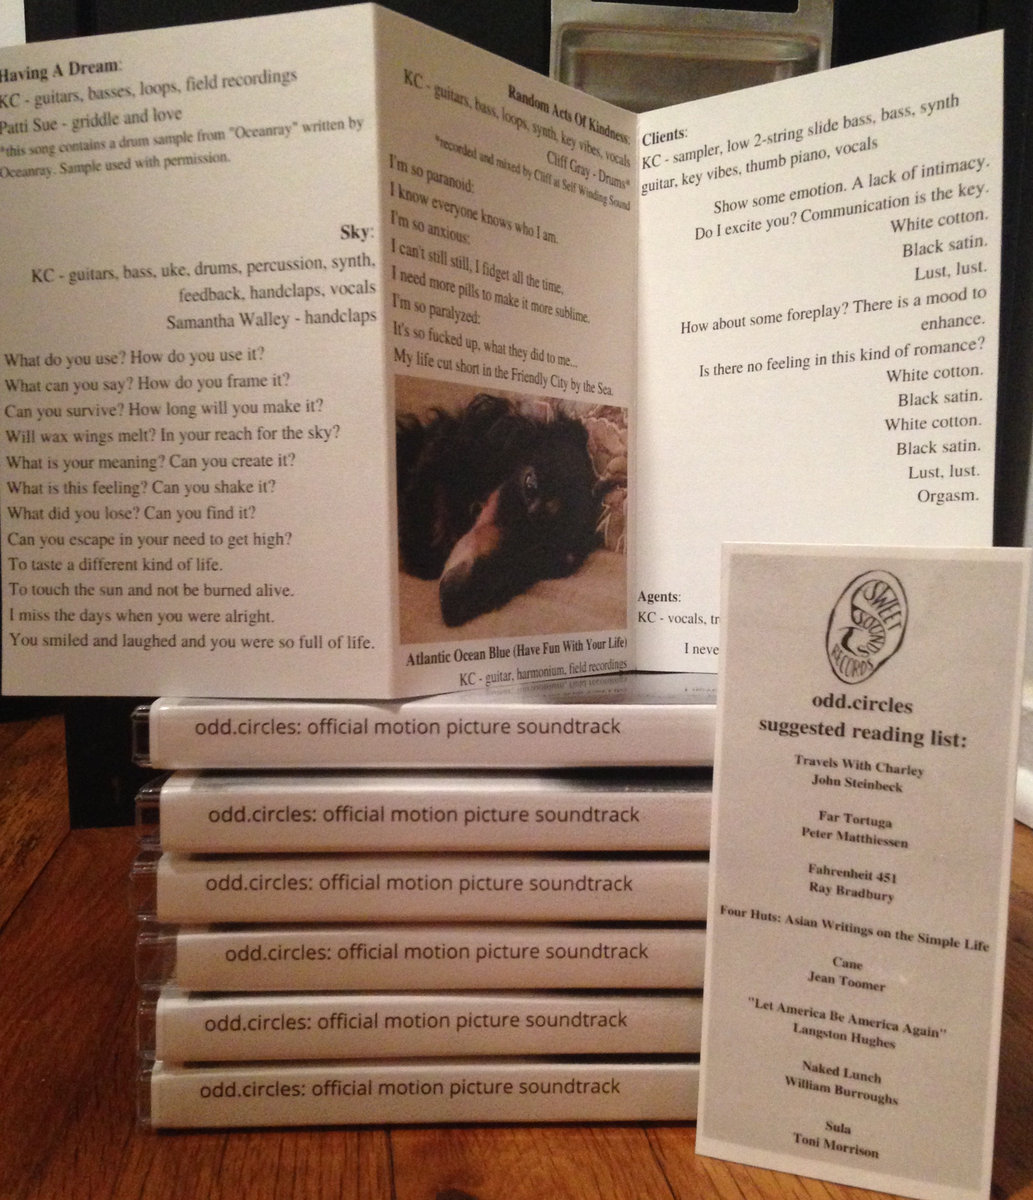 Having A Dream:
KC - guitars, basses, loops, field recordings
Patti Sue - griddle and love
*this song contains a drum sample from "Oceanray" written by
Oceanray. Sample used with permission.
Sky:
KC - guitars, bass, uke, drums, percussion, synth,
feedback, handclaps, vocals
Samantha Walley - handclaps
What do you use? How do you use it?
What can you say? How do you frame it?
Can you survive? How long will you make it?
Will wax wings melt? In your reach for the sky?
What is your meaning? Can you create it?
What is this feeling? Can you shake it?
What did you lose? Can you find it?
Can you escape in your need to get high?
To taste a different kind of life.
To touch the sun and not be burned alive.
I miss the days when you were alright.
You smiled and laughed and you were so full of life.
Random Acts Of Kindness:
KC - guitars, bass, loops, synth, key vibes, vocals
Cliff Gray - Drums*
*recorded and mixed by Cliff at Self Winding Sound
I'm so paranoid:
I know everyone knows who I am.
I'm so anxious:
I can't still still, I fidget all the time,
I need more pills to make it more sublime.
I'm so paralyzed:
It's so fucked up, what they did to me...
My life cut short in the Friendly City by the Sea.
Atlantic Ocean Blue (Have Fun With Your Life)
KC - guitar, harmonium, field recordings
Clients:
KC - sampler, low 2-string slide bass, bass, synth
guitar, key vibes, thumb piano, vocals
Show some emotion. A lack of intimacy.
Do I excite you? Communication is the key.
White cotton.
Black satin.
Lust, lust.
How about some foreplay? There is a mood to
enhance.
Is there no feeling in this kind of romance?
White cotton.
Black satin.
White cotton.
Black satin.
Lust, lust.
Orgasm.
Agents:
KC - vocals, tr
I neve
odd.circles: official motion picture soundtrack
odd.circles: official motion picture soundtrack
odd.circles: official motion picture soundtrack
odd.circles: official motion picture soundtrack
odd.circles: official motion picture soundtrack
odd.circles: official motion picture soundtrack
SWEET
SOUNDS
RECORDS
odd.circles
suggested reading list:
Travels With Charley
John Steinbeck
Far Tortuga
Peter Matthiessen
Fahrenheit 451
Ray Bradbury
Four Huts: Asian Writings on the Simple Life
Cane
Jean Toomer
"Let America Be America Again"
Langston Hughes
Naked Lunch
William Burroughs
Sula
Toni Morrison